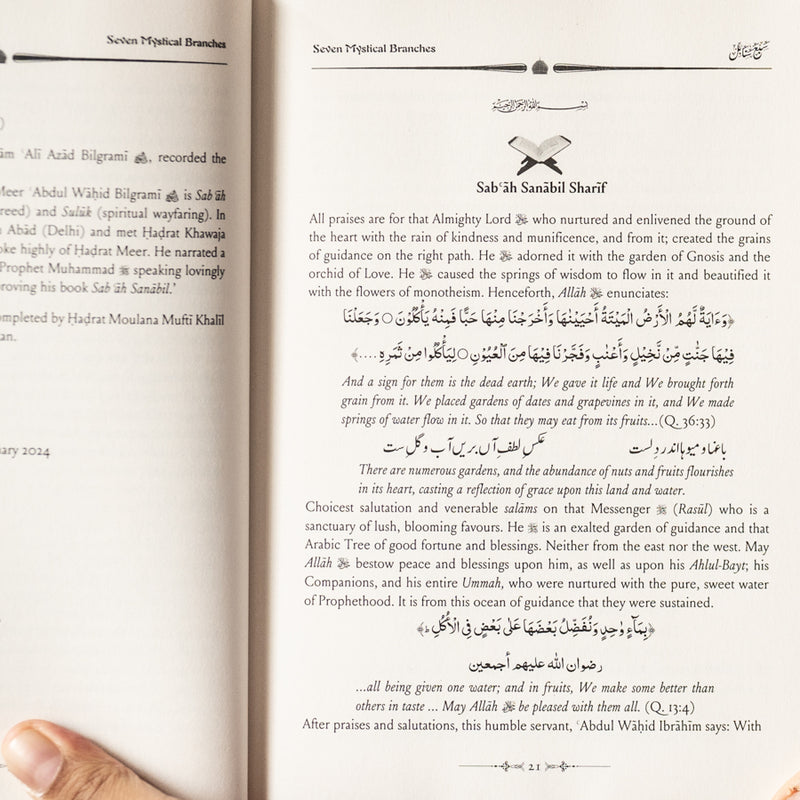 Seven Mystical Branches
ām ʿAlī Azād Bilgramī, recorded the
Meer ʿAbdul Wāḥid Bilgramī is Sabʿāh
reed) and Sulūk (spiritual wayfaring). In
Abād (Delhi) and met Ḥaḍrat Khawaja
oke highly of Ḥaḍrat Meer. He narrated a
Prophet Muhammad ﷺ speaking lovingly
roving his book Sabʿāh Sanābil.’
ompleted by Ḥaḍrat Moulana Mufti Khalīl
an.
ary 2024
Seven Mystical Branches
سبع سنابل
بسم الله الرحمن الرحيم
Sabʿāh Sanābil Sharīf
All praises are for that Almighty Lord ﷻ who nurtured and enlivened the ground of
the heart with the rain of kindness and munificence, and from it; created the grains
of guidance on the right path. He ﷻ adorned it with the garden of Gnosis and the
orchid of Love. He ﷻ caused the springs of wisdom to flow in it and beautified it
with the flowers of monotheism. Henceforth, Allāh ﷻ enunciates:
﴿وَءَايَةٌ لَّهُمُ الْأَرْضُ الْمَيْتَةُ أَحْيَيْنَٰهَا وَأَخْرَجْنَا مِنْهَا حَبًّا فَمِنْهُ يَأْكُلُونَ ○ وَجَعَلْنَا
فِيهَا جَنَّٰتٍ مِّنْ نَّخِيلٍ وَأَعْنَٰبٍ وَفَجَّرْنَا فِيهَا مِنَ الْعُيُونِ ○ لِيَأْكُلُوا مِنْ ثَمَرِهِ....﴾
And a sign for them is the dead earth; We gave it life and We brought forth
grain from it. We placed gardens of dates and grapevines in it, and We made
springs of water flow in it. So that they may eat from its fruits...(Q. 36:33)
باغها و میوہا اندر دلست عکس لطفِ آں بریں آب و گل ست
There are numerous gardens, and the abundance of nuts and fruits flourishes
in its heart, casting a reflection of grace upon this land and water.
Choicest salutation and venerable salāms on that Messenger ﷺ (Rasūl) who is a
sanctuary of lush, blooming favours. He ﷺ is an exalted garden of guidance and that
Arabic Tree of good fortune and blessings. Neither from the east nor the west. May
Allāh ﷻ bestow peace and blessings upon him, as well as upon his Ahlul-Bayt; his
Companions, and his entire Ummah, who were nurtured with the pure, sweet water
of Prophethood. It is from this ocean of guidance that they were sustained.
﴿بِمَآءٍ وَٰحِدٍ وَنُفَضِّلُ بَعْضَهَا عَلَىٰ بَعْضٍ فِى الْأُكُلِ ط﴾
رضوان الله عليهم أجمعين
...all being given one water; and in fruits, We make some better than
others in taste ... May Allāh ﷻ be pleased with them all. (Q. 13:4)
After praises and salutations, this humble servant, ʿAbdul Wāḥid Ibrāhīm says: With
21